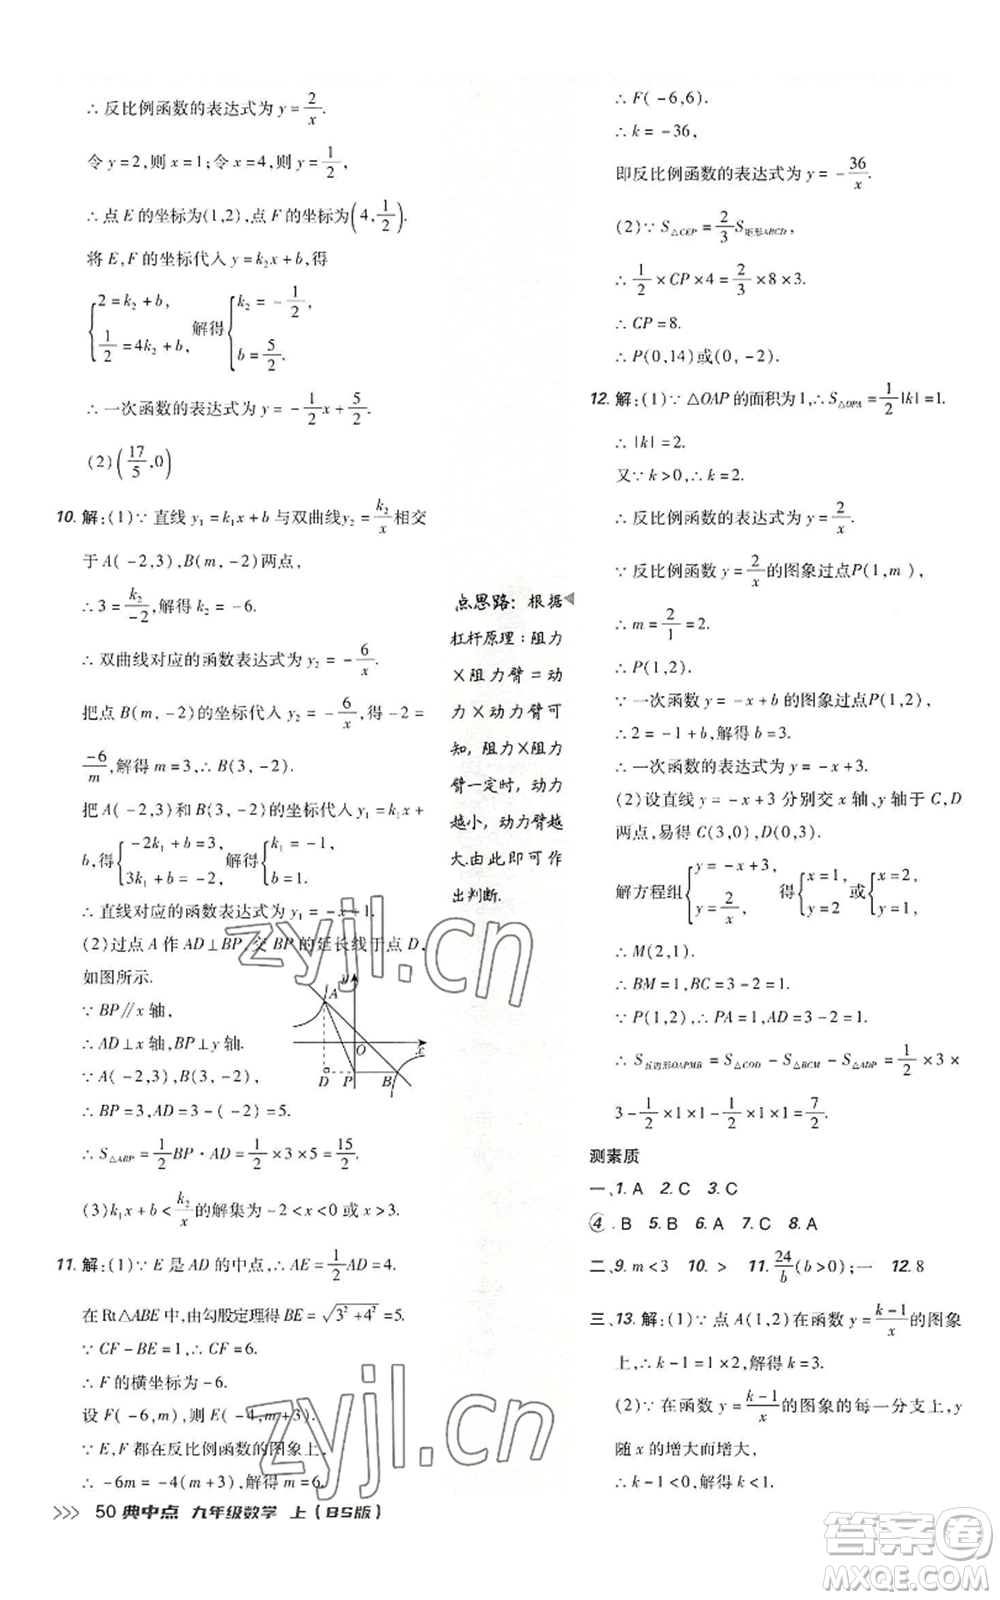 ∴反比例函数的表达式为y=2/x.
令y=2,则x=1;令x=4,则y=1/2,
∴点E的坐标为(1,2),点F的坐标为(4,1/2).
将E,F的坐标代入y=k₂x+b,得
{2=k₂+b, 1/2=4k₂+b, 解得{k₂=-1/2, b=5/2.
∴一次函数的表达式为y=-1/2x+5/2.
(2)(17/5,0)
10.解:(1)∵直线y₁=k₁x+b与双曲线y₂=k₂/x相交
于A(-2,3),B(m,-2)两点,
∴3=k₂/-2,解得k₂=-6.
∴双曲线对应的函数表达式为y₂=-6/x.
把点B(m,-2)的坐标代入y₂=-6/x,得-2=
-6/m,解得m=3,∴B(3,-2).
把A(-2,3)和B(3,-2)的坐标代入y₁=k₁x+
b,得{-2k₁+b=3, 3k₁+b=-2, 解得{k₁=-1, b=1.
∴直线对应的函数表达式为y₁=-x+1.
(2)过点A作AD⊥BP,交BP的延长线于点D,
如图所示.
∵BP∥x轴,
∴AD⊥x轴,BP⊥y轴.
∵A(-2,3),B(3,-2),
∴BP=3,AD=3-(-2)=5.
∴S△ABP=1/2BP·AD=1/2×3×5=15/2.
(3)k₁x+b<k₂/x的解集为-2<x<0或x>3.
y
A
O
x
D
P
B
11.解:(1)∵E是AD的中点,∴AE=1/2AD=4.
在Rt△ABE中,由勾股定理得BE=√(3²+4²)=5.
∵CF-BE=1,∴CF=6.
∴F的横坐标为-6.
设F(-6,m),则E(-4,m+3).
∵E,F都在反比例函数的图象上,
∴-6m=-4(m+3),解得m=6.
点思路:根据
杠杆原理:阻力
×阻力臂=动
力×动力臂可
知,阻力×阻力
臂一定时,动力
越小,动力臂越
大.由此即可作
出判断.
∴F(-6,6).
∴k=-36,
即反比例函数的表达式为y=-36/x.
(2)∵S△CEP=2/3S矩形ABCD,
∴1/2×CP×4=2/3×8×3.
∴CP=8.
∴P(0,14)或(0,-2).
12.解:(1)∵△OAP的面积为1,∴S△OPA=1/2|k|=1.
∴|k|=2.
又∵k>0,∴k=2.
∴反比例函数的表达式为y=2/x.
∵反比例函数y=2/x的图象过点P(1,m),
∴m=2/1=2.
∴P(1,2).
∵一次函数y=-x+b的图象过点P(1,2),
∴2=-1+b,解得b=3.
∴一次函数的表达式为y=-x+3.
(2)设直线y=-x+3分别交x轴、y轴于C,D
两点,易得C(3,0),D(0,3).
解方程组{y=-x+3, y=2/x, 得{x=1, y=2 或{x=2, y=1.
∴M(2,1).
∴BM=1,BC=3-2=1.
∵P(1,2),∴PA=1,AD=3-2=1.
∴S五边形OAPMB=S△COD-S△BCM-S△ADP=1/2×3×
3-1/2×1×1-1/2×1×1=7/2.
测素质
一、1.A 2.C 3.C
④.B 5.B 6.A 7.C 8.A
二、9.m<3 10.> 11.24/b(b>0);一 12.8
三、13.解:(1)∵点A(1,2)在函数y=k-1/x的图象
上,∴k-1=1×2,解得k=3.
(2)∵在函数y=k-1/x的图象的每一分支上,y
随x的增大而增大,
∴k-1<0,解得k<1.
>>> 50 典中点 九年级数学 上(BS版)
zyjl.cn
zyjl.cn
答案圈
MXQE.COM